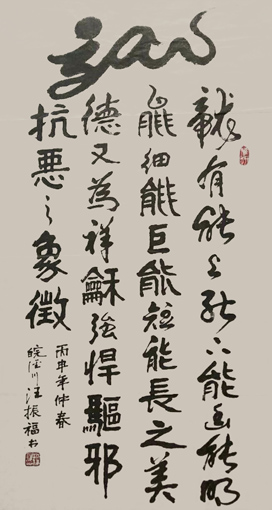 龍有能上能下能幽能明
能細能巨能短能長之美
德又為祥龢強悍驅邪
抗惡之象徵
丙申年仲春
皖涇川汪振福书